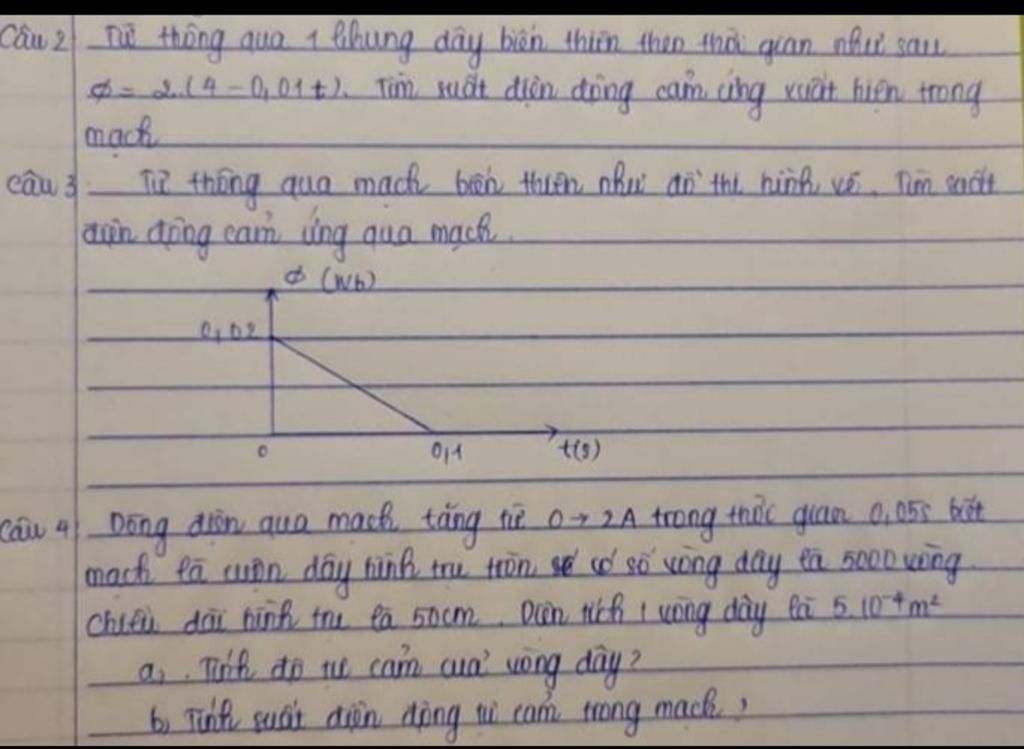 Câu 2 Từ thông qua 1 khung dây biến thiên theo thời gian như sau
Φ = 2.(4 - 0,01t). Tìm suất điện động cảm ứng xuất hiện trong
mạch
Câu 3 Từ thông qua mạch biến thiên như đồ thị hình vẽ. Tìm suất
điện động cảm ứng qua mạch.
Φ (Wb)
0,02
0 0,1 t(s)
Câu 4 Dòng điện qua mạch tăng từ 0 → 2A trong thời gian 0,05s biết
mạch là cuộn dây hình trụ tròn có số vòng dây là 5000 vòng.
chiều dài hình trụ là 50cm. Diện tích 1 vòng dây là 5.10⁻⁴m²
a, Tính độ tự cảm của vòng dây?
b, Tính suất điện động tự cảm trong mạch?